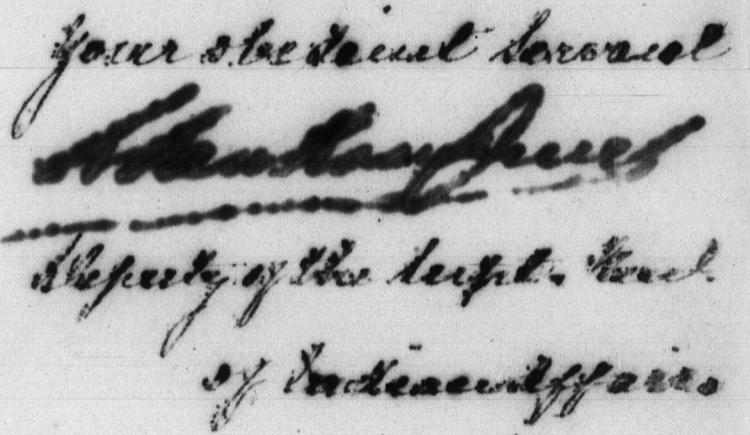 Your obedient Servant
Deputy of the Supt. Genl.
of Indian Affairs.